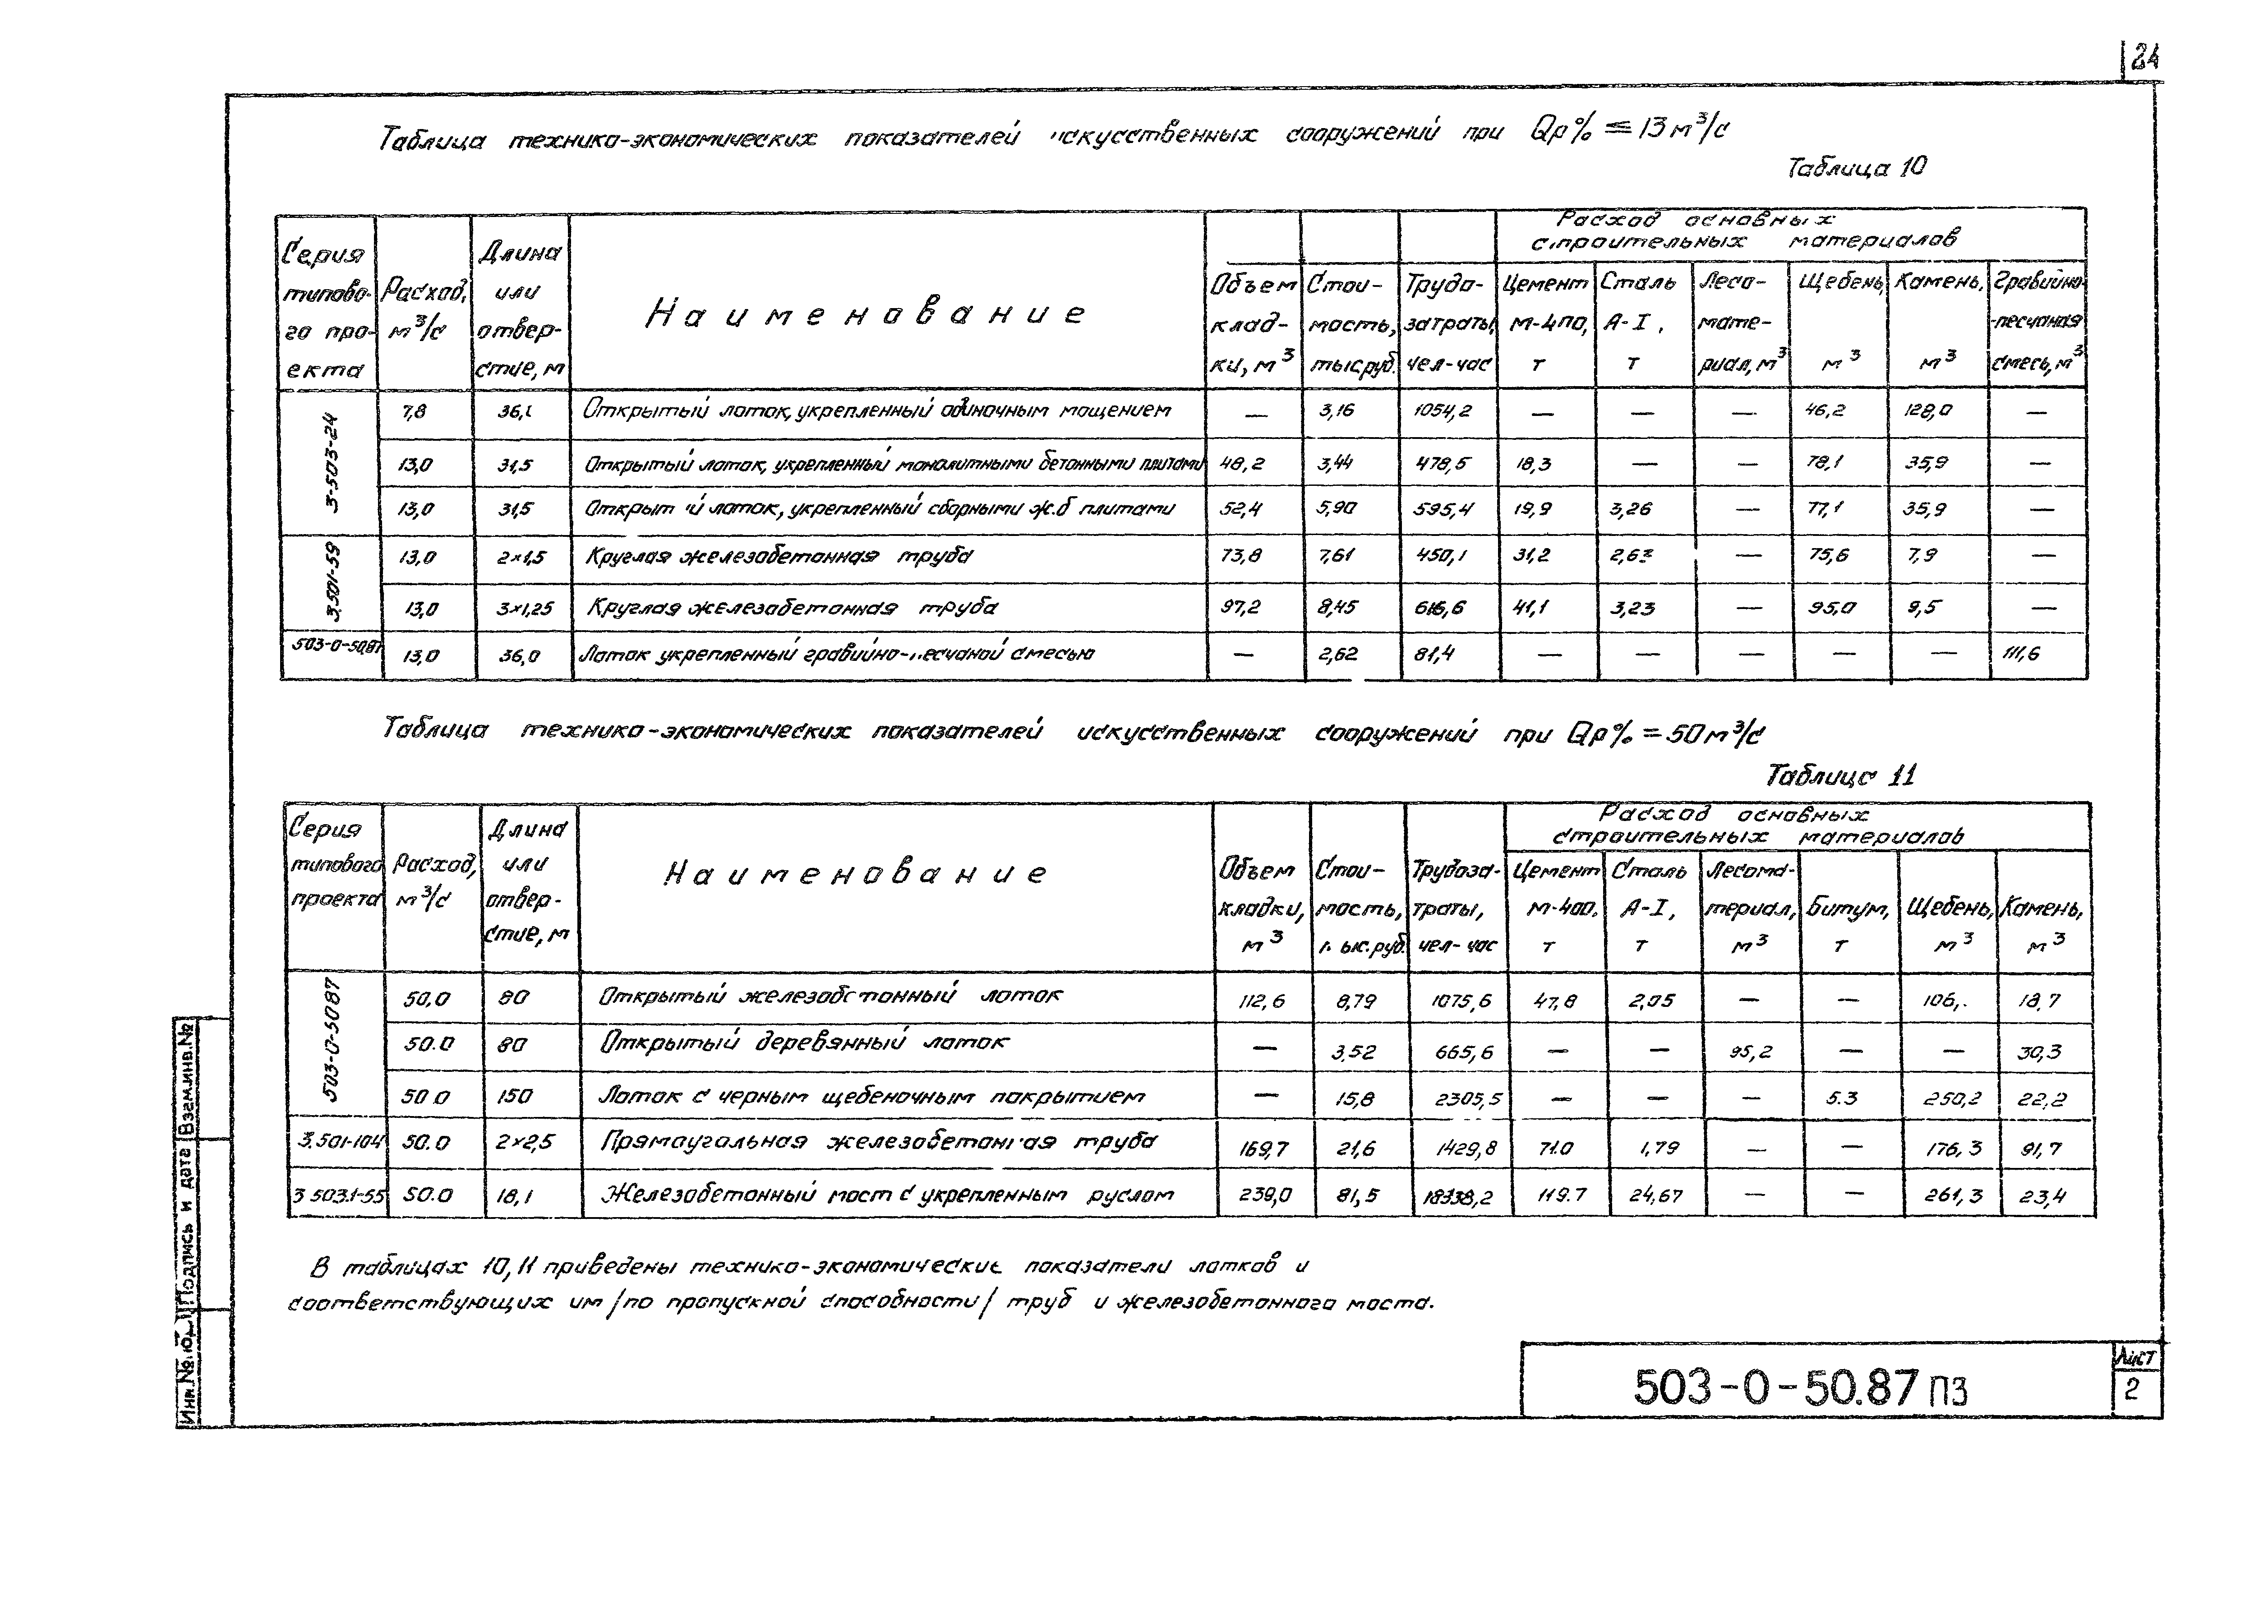 24
Таблица технико-экономических показателей искусственных сооружений при Qр% ≤ 13 м³/с
Таблица 10
Серия типово- го про- екта | Расход, м³/с | Длина или отвер- стие, м | Наименование | Объем клад- ки, м³ | Стои- мость, тыс.руб. | Трудо- затраты, чел-час | Расход основных строительных материалов
Цемент М-400, т | Сталь А-I, т | Лесо- мате- риал, м³ | Щебень, м³ | Камень, м³ | Гравийно- -песчаная смесь, м³
3-503-24 | 7,8 | Открытый лоток, укрепленный одиночным мощением | — | 3,16 | 1054,2 | — | — | — | 46,2 | 128,0 | —
13,0 | 31,5 | Открытый лоток, укрепленный монолитными бетонными плитами | 48,2 | 3,44 | 478,5 | 18,3 | — | — | 78,1 | 35,9 | —
13,0 | 31,5 | Открыт й лоток, укрепленный сборными ж.б плитами | 52,4 | 5,90 | 595,4 | 19,9 | 3,26 | — | 77,1 | 35,9 | —
3.501-59 | 13,0 | 2×1,5 | Круглая железобетонная труба | 73,8 | 7,61 | 450,1 | 31,2 | 2,63 | — | 75,6 | 7,9 | —
13,0 | 3×1,25 | Круглая железобетонная труба | 97,2 | 8,45 | 616,6 | 41,1 | 3,23 | — | 95,0 | 9,5 | —
503-0-50.87 | 13,0 | 36,0 | Лоток укрепленный гравийно-песчаной смесью | — | 2,62 | 81,4 | — | — | — | — | — | 111,6
Таблица технико-экономических показателей искусственных сооружений при Qр% = 50 м³/с
Таблица 11
Серия типового проекта | Расход, м³/с | Длина или отвер- стие, м | Наименование | Объем кладки, м³ | Стои- мость, тыс.руб. | Трудоза- траты, чел-час | Расход основных строительных материалов
Цемент М-400, т | Сталь А-I, т | Лесома- териал, м³ | Битум, т | Щебень, м³ | Камень, м³
503-0-5087 | 50,0 | 80 | Открытый железобетонный лоток | 112,6 | 8,79 | 1075,6 | 47,8 | 2,05 | — | — | 18,7
50.0 | 80 | Открытый деревянный лоток | — | 3,52 | 665,6 | — | — | 95,2 | — | — | 30,3
50 0 | 150 | Лоток с черным щебеночным покрытием | — | 15,8 | 2305,5 | — | — | — | 5.3 | 250,2 | 22,2
3.501-104 | 50.0 | 2×2,5 | Прямоугольная железобетонная труба | 169,7 | 21,6 | 1429,8 | 71.0 | 1,79 | — | — | 176,3 | 91,7
3 503.1-55 | 50.0 | 18,1 | Железобетонный мост с укрепленным руслом | 239,0 | 81,5 | 18338,2 | 119.7 | 24,67 | — | — | 261,3 | 23,4
В таблицах 10, 11 приведены технико-экономические показатели лотков и
соответствующих им /по пропускной способности/ труб и железобетонного моста.
Инв.№ Подпись и дата Взам.инв.№
503-0-50.87 ПЗ
Лист
2